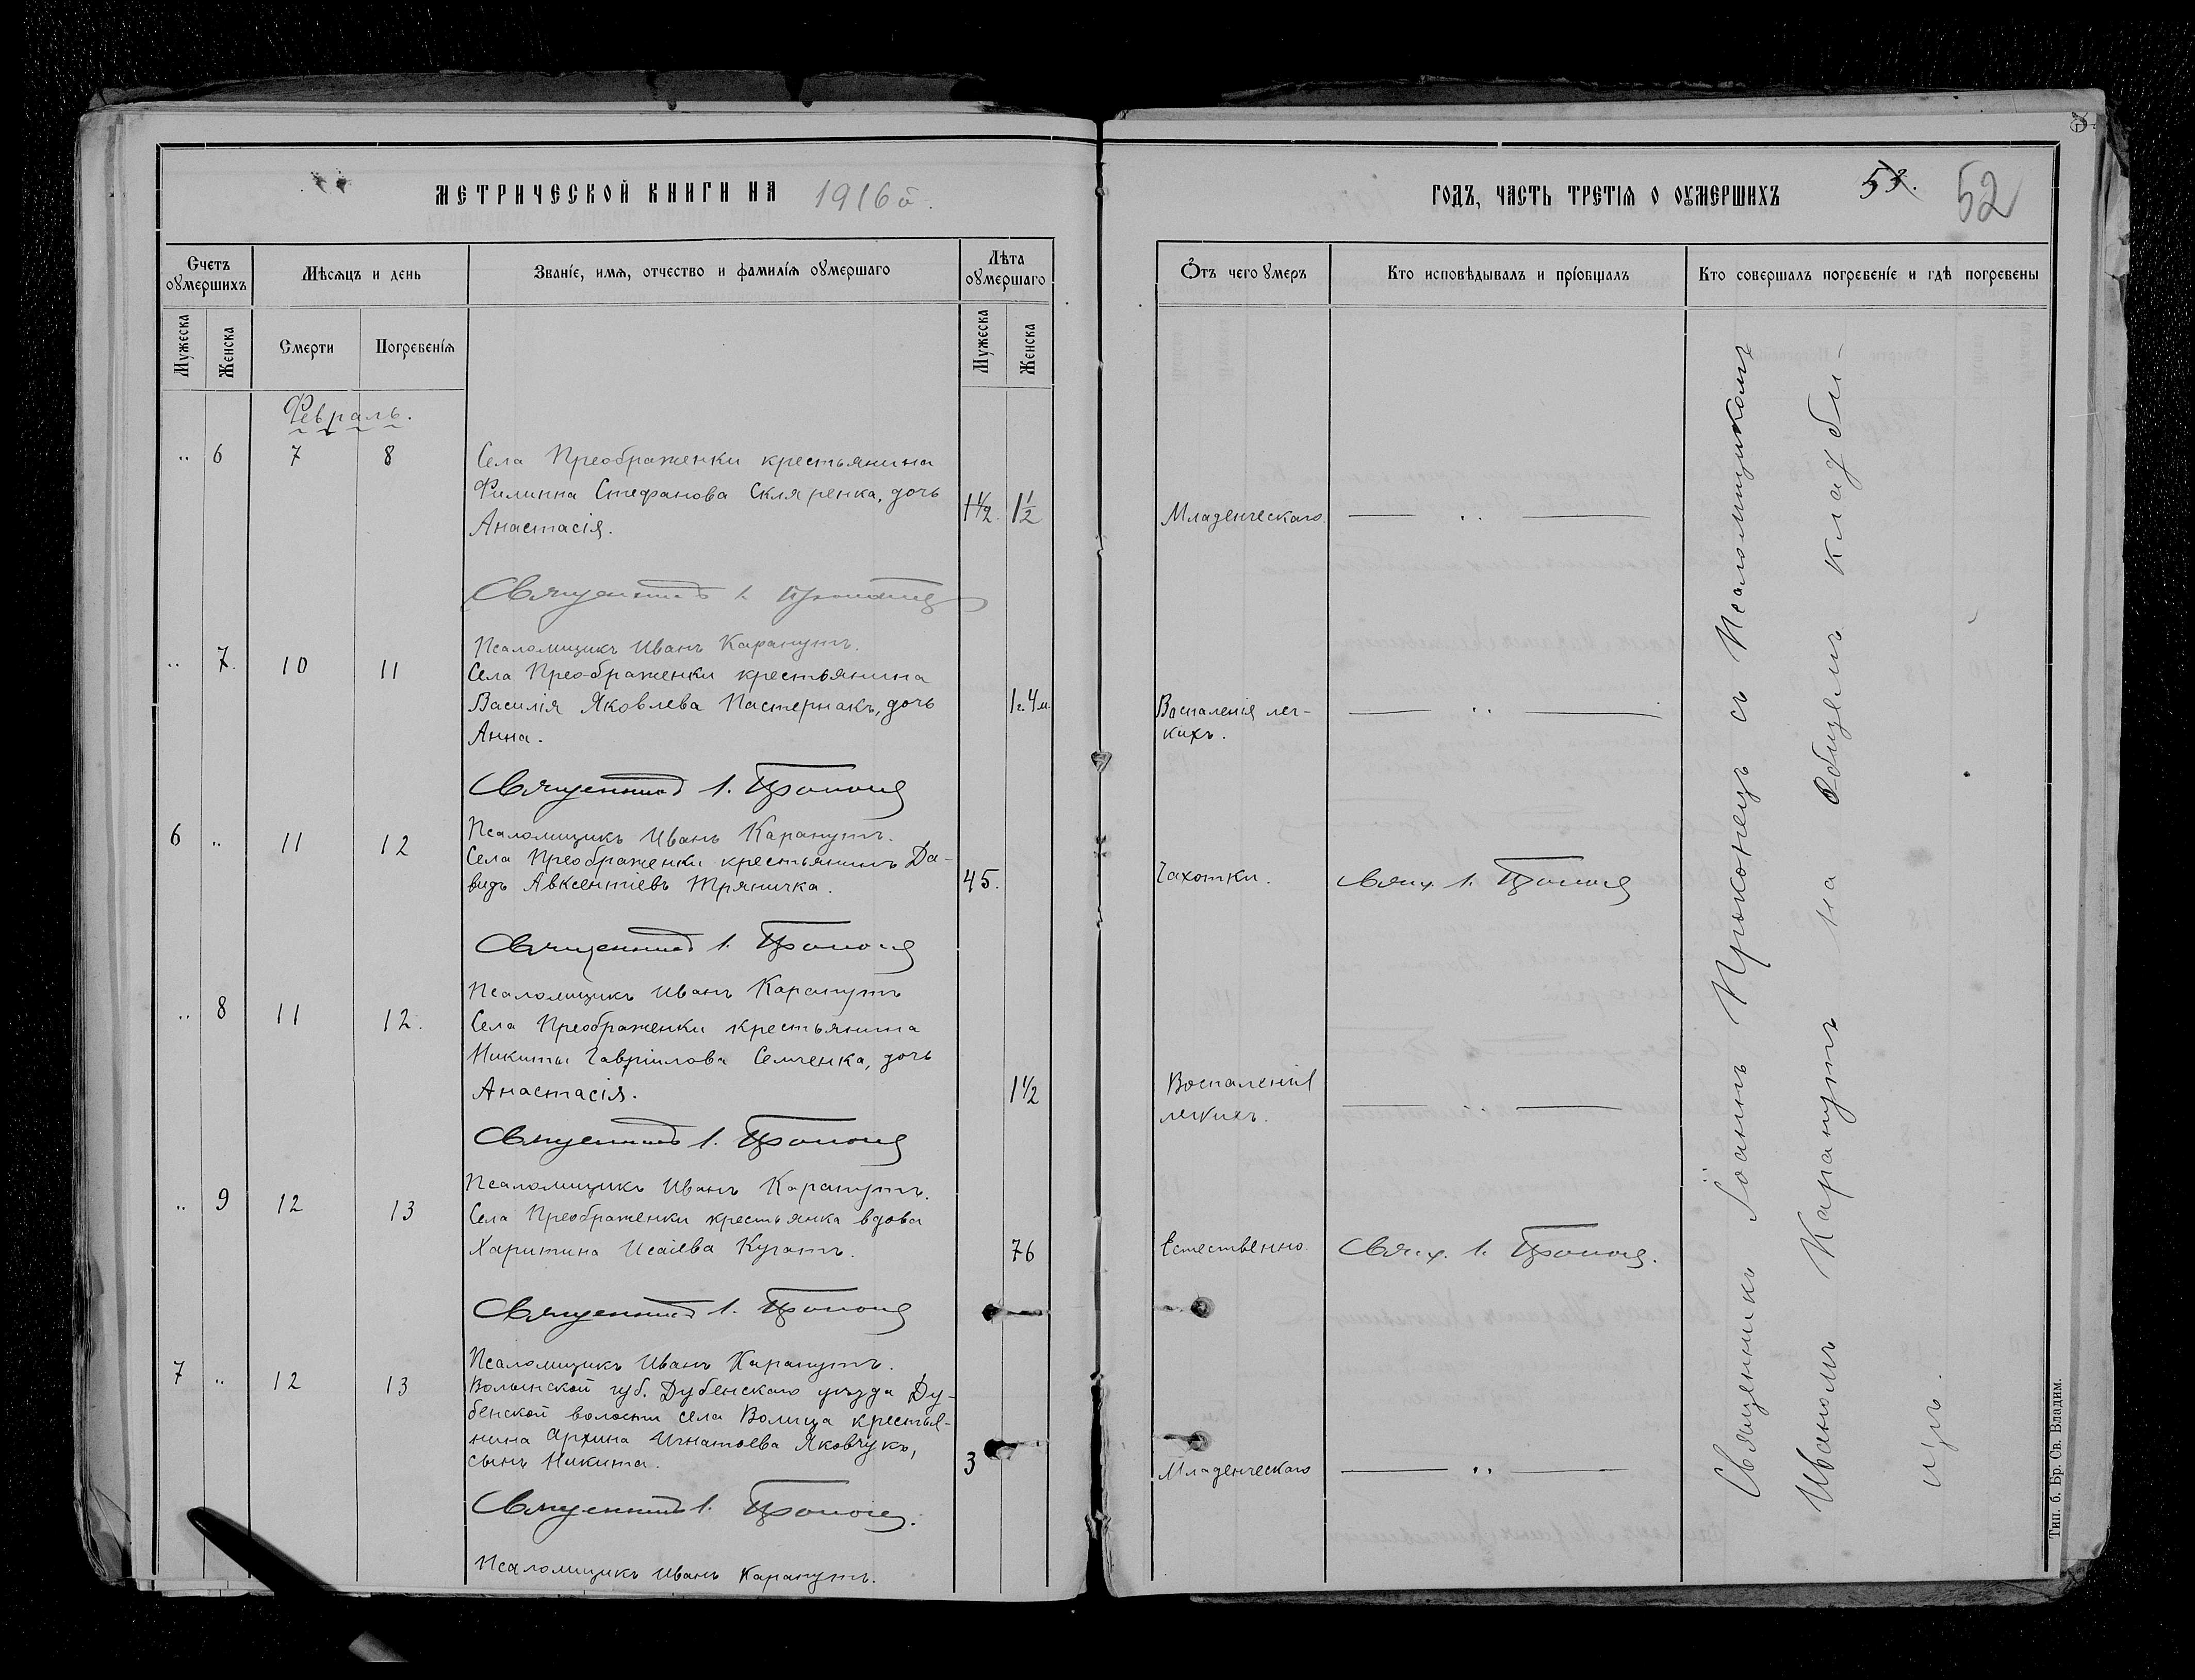 МЕТРИЧЕСКОЙ КНИГИ НА 1916й.
Счетъ оумершихъ
Мѣсяцъ и день
Званіе, имя, отчество и фамилія оумершаго
Лѣта оумершаго
Мужеска
Женска
Смерти
Погребенія
Мужеска
Женска
Февраль.
" 6 7 8
Села Преображенки крестьянина
Филиппа Стефанова Скляренка, дочь
Анастасія.
1 1/2. 1 1/2
Священникъ І.
Псаломщикъ Иванъ Карапутъ.
" 7. 10 11
Села Преображенки крестьянина
Василія Яковлева Пастернакъ, дочь
Анна.
1г. 4м.
Священникъ І.
Псаломщикъ Иванъ Карапутъ.
6 " 11 12
Села Преображенки крестьянинъ Да-
видъ Авксентіевъ Тряпичка.
45.
Священникъ І.
Псаломщикъ Иванъ Карапутъ
" 8 11 12.
Села Преображенки крестьянина
Никиты Гавріилова Семченка, дочь
Анастасія.
1 1/2
Священникъ І.
Псаломщикъ Иванъ Карапутъ.
" 9 12 13
Села Преображенки крестьянка вдова
Харитина Исаіева
76
Священникъ І.
Псаломщикъ Иванъ Карапутъ.
7 " 12 13
Волынской губ. Дубенскаго уѣзда Ду-
бенской волости села Волица крестья-
нина Архипа Игнатьева Яковчукъ,
сынъ Никита.
3
Священникъ І.
Псаломщикъ Иванъ Карапутъ.
ГОДЪ, ЧАСТЬ ТРЕТІЯ О ОУМЕРШИХЪ
53.
52
Отъ чего умеръ
Кто исповѣдывалъ и пріобщалъ
Кто совершалъ погребеніе и гдѣ погребены
Младенческаго "
Воспаленія лег-
кихъ. "
Чахотки.
Свящ. І.
Воспаленія
легкихъ. "
Естественно.
Свящ. І.
Младенческаго "
Священникъ Іоаннъ съ Псаломщикомъ
Иваномъ Карапутъ на Общемъ кладби-
щѣ.
Тип. б. Бр. Св. Владим.